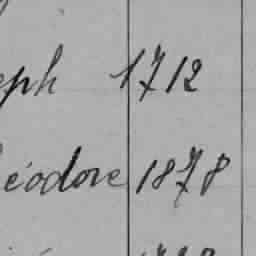 eph 1712
éodore 1878